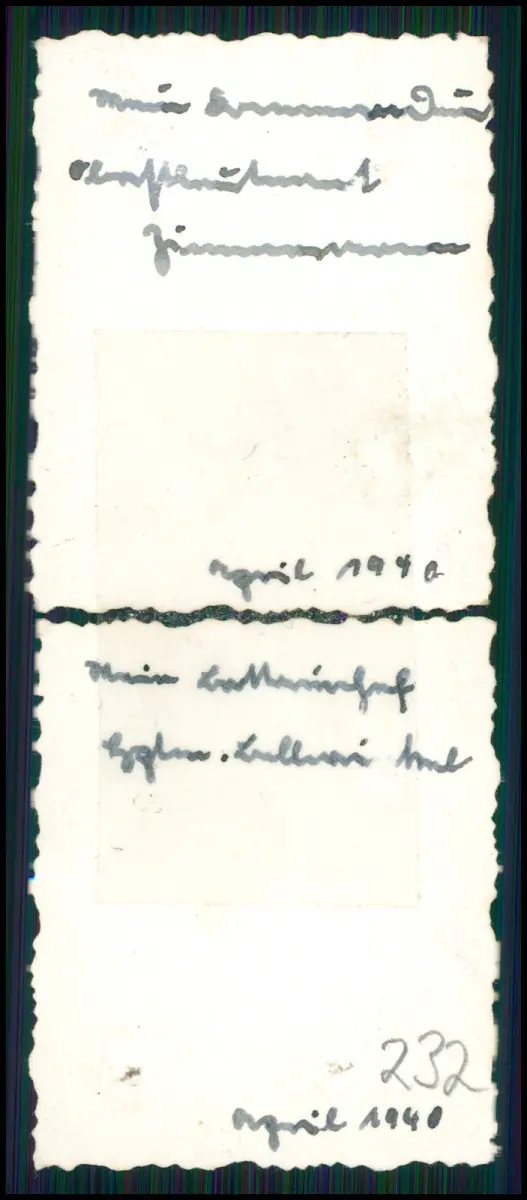 Mein Kommandeur
Oberstleutnant
Zimmermann
April 1940
Mein Batteriechef
Hptm.
232
April 1940